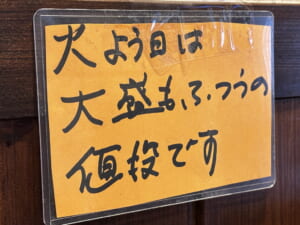 火よう日は
大盛も、ふつうの
値段です